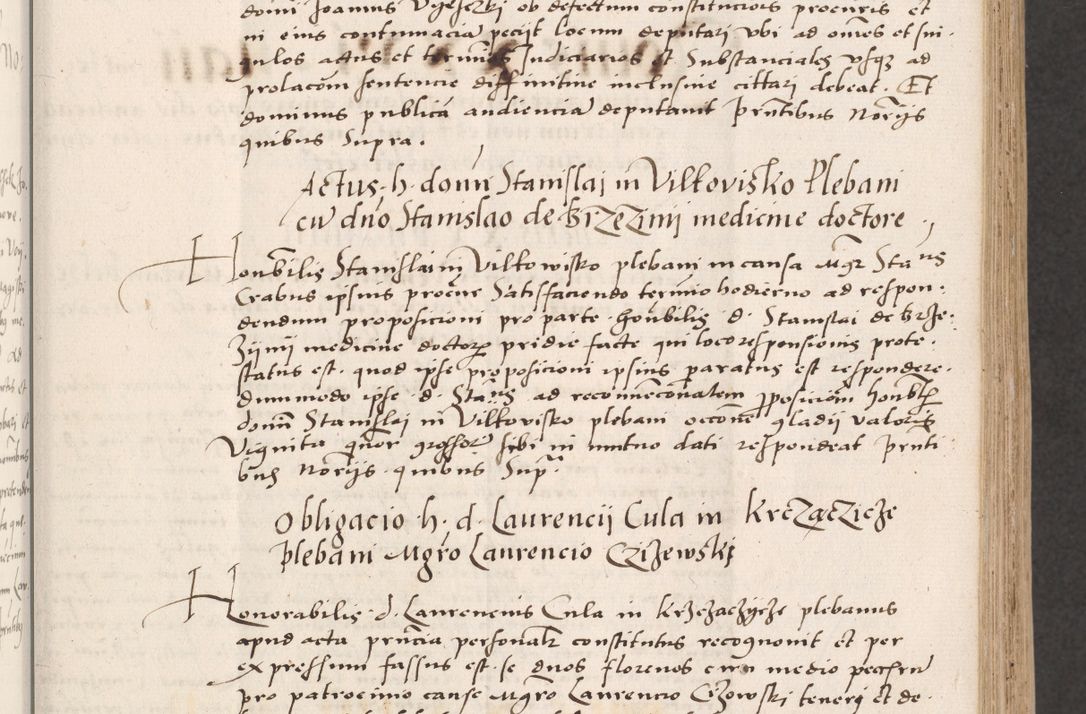 domini Joannis Vgyeszki ob defectum constitucionis procuris et
in eius contumaciã peciit locum deputari vbi ad omẽs et sin-
gulos actus et terminos Judiciarios et Substanciales vsqz ad
prolacõm sentencie diffinitiue inclusiue cittari debeat. Et
dominus publicã audienciã deputauit p̃ntibus Norijs
quibus supra.
Actus h. domi Stanislaj in Vilkovisko Plebani
cũ dño Stanislao de Brzezini medicine doctore
Honorbilis Stanislai in Vilkowisko plebani in causa Mgr Sta us
Crabus ipsius procur Satisfaciendo termio hodierno ad respon-
dendum proposicioni pro parte honbilis d. Stanislai de Brze-
zijnij medicine doctor pridie facte qui loco responsionis prote-
status est. quod ipse proposicioni ipsius paratus est respondere
dummodo ipse d. Stãus ad reconuẽcionalem proposiciõm honblis
domi Stanislaj in Vilkovisko plebani occõne gladii valoris
Viginta quor grossor sibi in mutuo dati respondeat p̃nti
bus Norijs quibus Sup.
Obligacio h. d. Laurencii Cula in Krczączicze
plebani Mgro Laurencio Czizewskj
Honorabilis d. Laurencius Cula in Krzezaczycze plebanus
apud acta p̃ncia personalr constitutus recognouit et per
expressum fassus est se duos florenos cum medio pecuñ
pro patrocinio cause Mgro Laurencio Cizowski teneri et de-